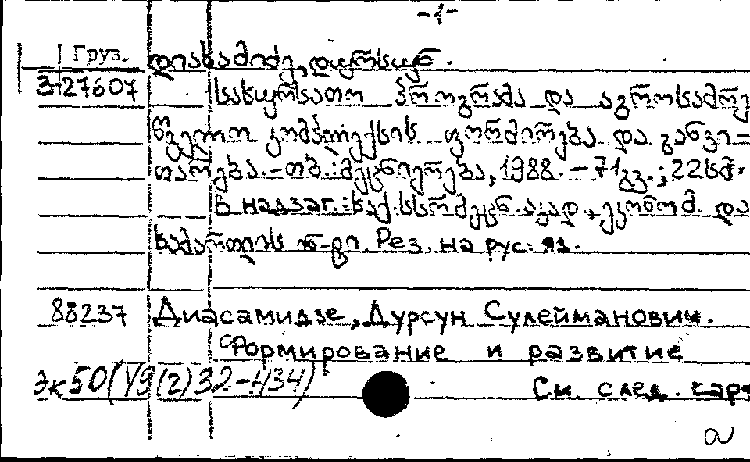 -1-
Груз. დიასამიძე, დურსუნ.
3-27607 სასურსათო პროგრამა და აგროსამრე
წველო კომპლექსის ფორმირება და განვი-
თარება. - თბ.: მეცნიერება, 1988. - 71 გვ.; 22 სმ.
В надзаг.: საქ. სსრ მეცნ. აკად., ეკონომ. და
სამართლის ინ-ტი. Рез. на рус. яз.
88237 Диасамидзе, Дурсун Сулейманович.
Формирование и развитие
Эк50(У9(2)32-434) См. след. карт